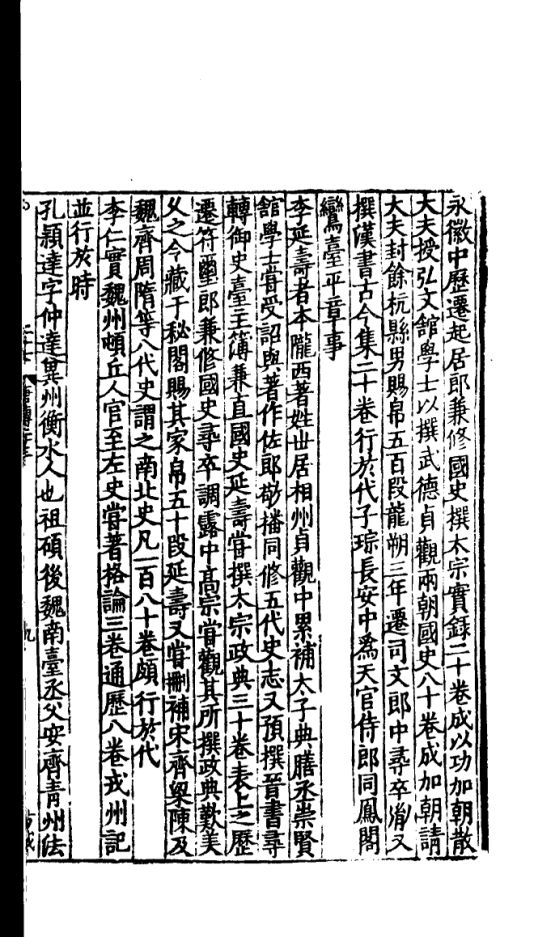 永徽中歷遷起居郎兼修國史撰太宗實錄二十卷成以功加朝散
大夫授弘文館學士以撰武德貞觀兩朝國史八十卷成加朝請
大夫封餘杭縣男賜帛五百段龍朔三年遷司文郎中尋卒胤又
撰漢書古今集二十卷行於代子琮長安中爲天官侍郎同鳳閣
鸞臺平章事
李延壽者本隴西著姓世居相州貞觀中累補太子典膳丞崇賢
館學士嘗受詔與著作佐郎敬播同修五代史志又預撰晉書尋
轉御史臺主簿兼直國史延壽嘗撰太宗政典三十卷表上之歷
遷符璽郎兼修國史尋卒調露中髙宗嘗觀其所撰政典歎美
乆之令藏于秘閣賜其家帛五十段延壽又嘗刪補宋齊梁陳及
魏齊周隋等八代史謂之南北史凡一百八十卷頗行於代
李仁實魏州頓丘人官至左史嘗著格論三卷通歷八卷戎州記
並行於時
孔穎達字仲達兾州衡水人也祖碩後魏南臺丞父安齊青州法